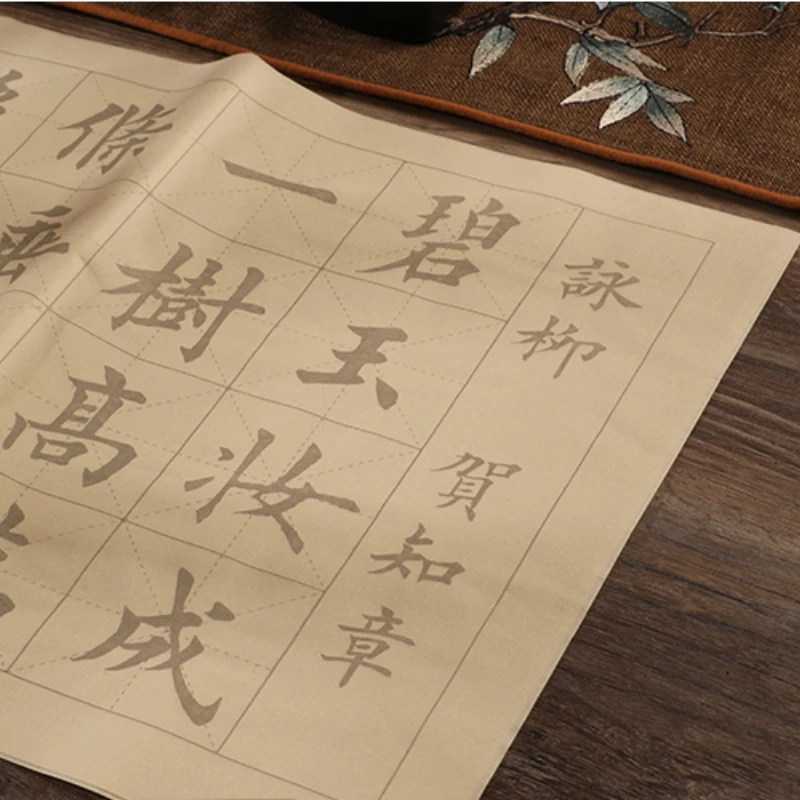 詠柳 賀知章
碧玉妆成
一樹髙
條垂